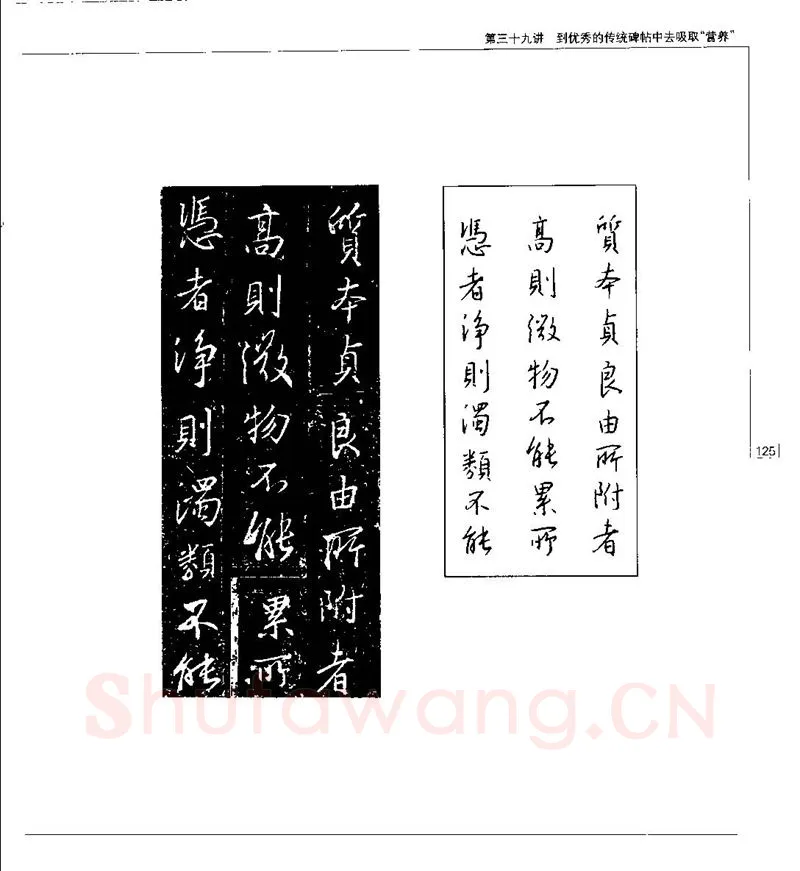 第三十九讲 到优秀的传统碑帖中去吸取“营养”
質本貞良由所附者
高則微物不能累所
憑者淨則濁類不能
質本貞良由所附者
高則微物不能累所
憑者淨則濁類不能
125
Shufawang.CN